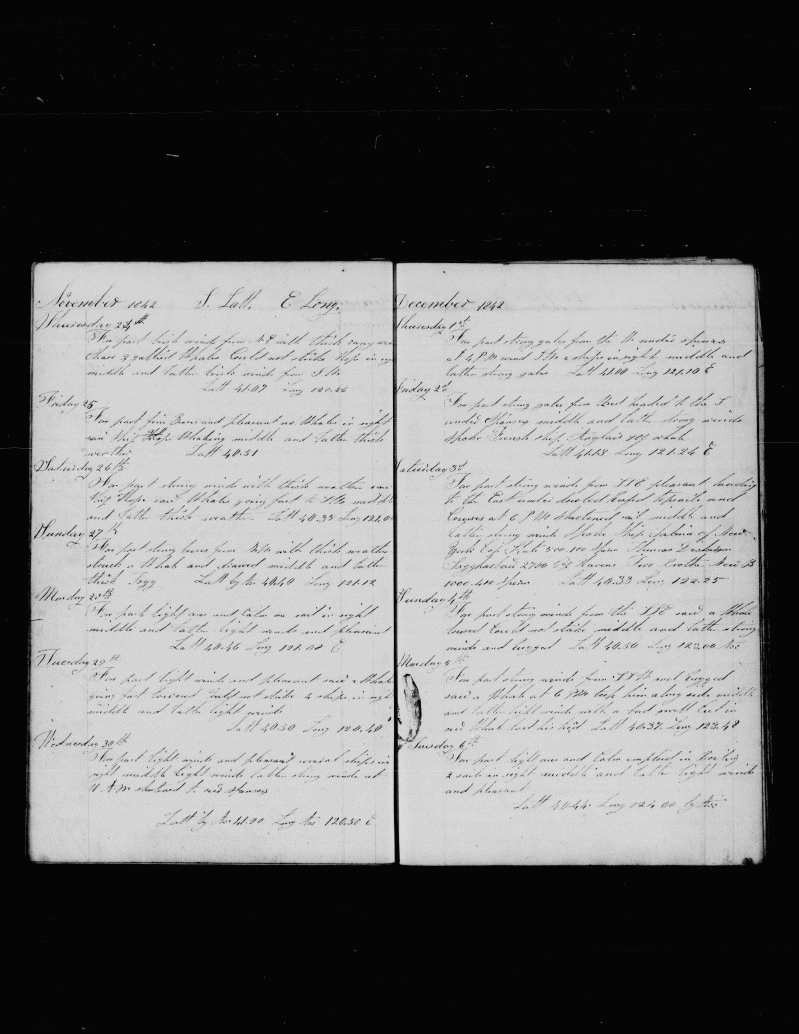 November 1842 S. Latt. E Long.
Thursday 24th
Fore part brisk winds from with thick rainy
Chase gallied Whales Could not strike Ship in
middle and latter brisk winds from S W
Latt 41.07 Long 120.26
Friday 25
Fore part fine Breeze and pleasant no Whales in sight
Ship Hope Whaling middle and latter thick
weather Latt 40.51
Saturday 26th
Fore part strong winds with thick weather
Ship Hope saw Whales going fast to middle
and latter thick weather Latt 40.35 Long 121.0
Sunday 27th
Fore part strong breeze from with thick weather
struck a Whale and middle and latter
thick Fogg Latt by 40.40 Long 121.12
Monday 28th
Fore part light airs and Calm one sail in sight
middle and latter light winds and pleasant
Latt 40.46 Long 121.08 E
Tuesday 29th
Fore part light winds and pleasant saw a Whale
going fast Lowered Could not strike 4 ships in sight
middle and latter light winds
Latt 40.50 Long 120.40
Wednesday 30th
Fore part light winds and pleasant several ships in
sight middle light winds latter strong winds at
A M shortened to
Latt by 41.00 Long 120.30 E
December 1842
Thursday 1st
Fore part strong gales from the under
at 4 P M wind S W 2 ships in sight middle and
latter strong gales Latt 41.00 Long 121.10 E
Friday 2d
Fore part strong gales from West headed to the S
under middle and latter strong winds
Spoke French ship
Latt 41.13 Long 121.24 E
Saturday 3d
Fore part strong winds from pleasant
to the East under double reefed topsails and
Courses at 6 P M shortened sail middle and
latter strong winds Spoke Ship Sabina of
500.100 Sperm Thomas Dickason
Sagharbour 2700 Two Brothers New B
1000.400 Sperm Latt 40.33 Long 122.25
Sunday 4th
Fore part strong winds from the saw a Whale
lowered Could not strike middle and latter strong
winds and rugged Latt 40.30 Long 123.00
Monday 5th
Fore part strong winds from and rugged
saw a Whale at 6 P M him along side middle
and latter light winds with a bad swell Cut in
Whale lost his head Latt 40.37 Long 123.48
Tuesday 6th
Fore part light airs and Calm employed in Boiling
2 sails in sight middle and latter light winds
and pleasant
Latt 40.44 Long 124.00 by